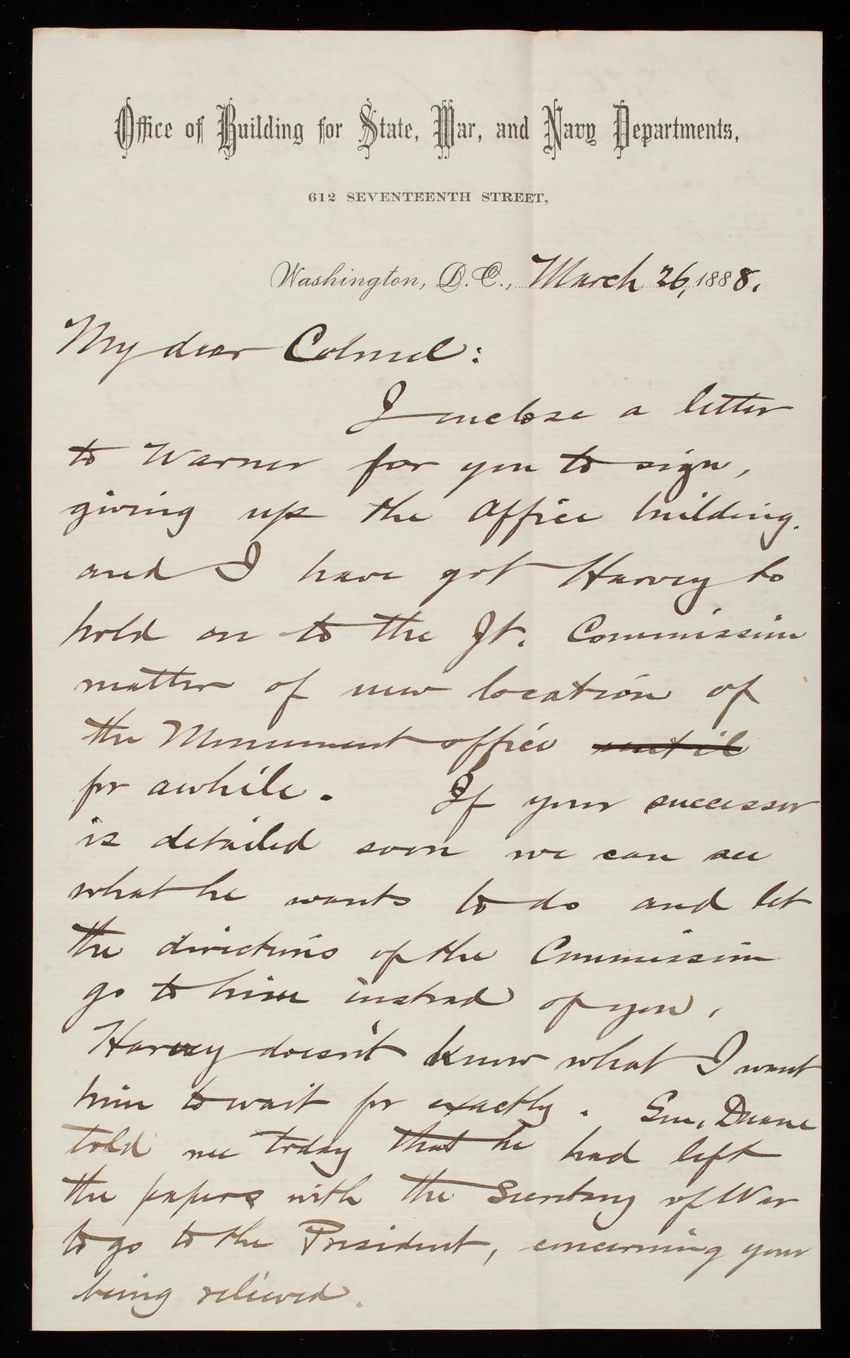 Office of Building for State, War, and Navy Departments,
612 SEVENTEENTH STREET,
Washington, D. C., March 26, 1888.
My dear Colonel:
I enclose a letter
to Warner for you to sign,
giving up the Office building.
and I have got Harvey to
hold on to the Jt. Commission
matter of new location of
the Monument office until
for awhile. If your successor
is detailed soon we can see
what he wants to do and let
the directions of the Commission
go to him instead of you.
Harvey doesn't know what I want
him to wait for exactly. Gen. Duane
told me today that he had left
the papers with the Secretary of War
to go to the President, concerning your
being relieved.